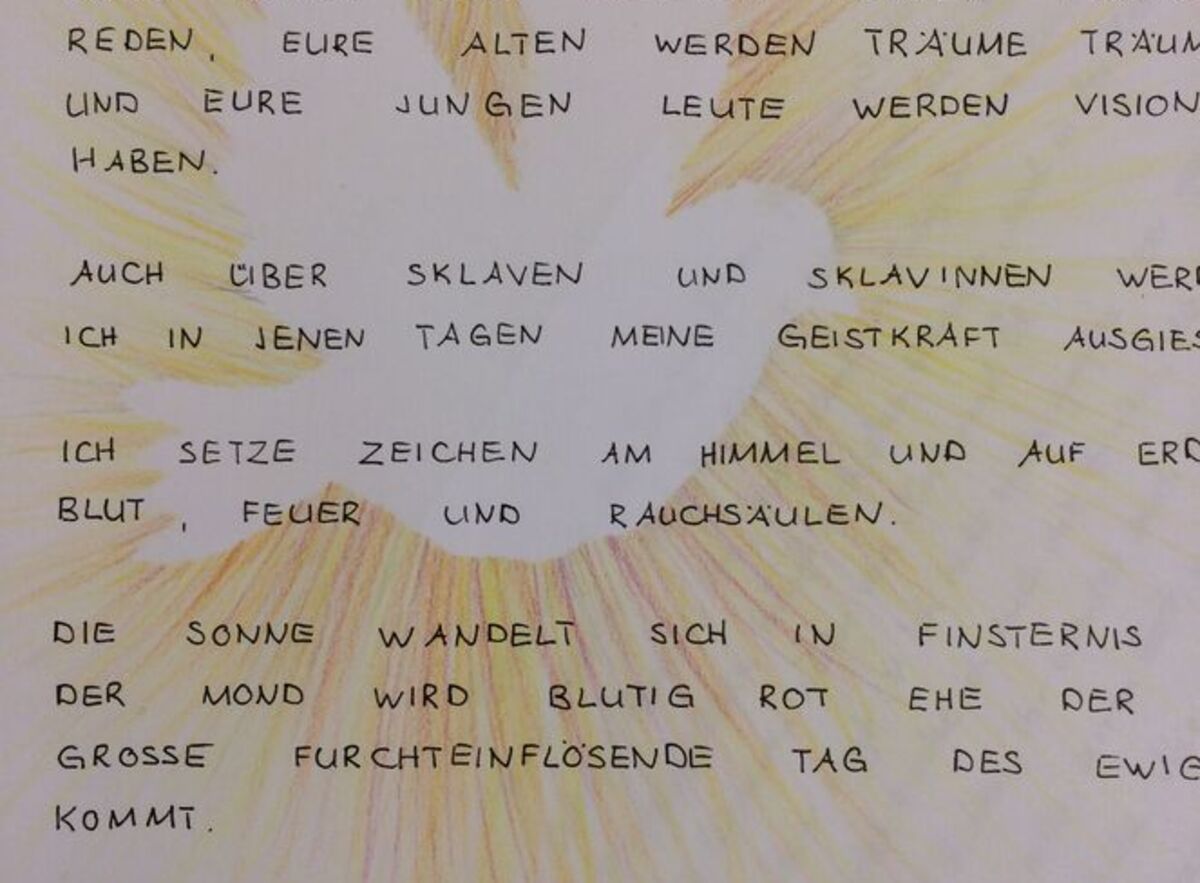 REDEN, EURE ALTEN WERDEN TRÄUME TRÄUM
UND EURE JUNGEN LEUTE WERDEN VISION
HABEN.
AUCH ÜBER SKLAVEN UND SKLAVINNEN WERD
ICH IN JENEN TAGEN MEINE GEISTKRAFT AUSGIES
ICH SETZE ZEICHEN AM HIMMEL UND AUF ERD
BLUT, FEUER UND RAUCHSÄULEN.
DIE SONNE WANDELT SICH IN FINSTERNIS
DER MOND WIRD BLUTIG ROT EHE DER
GROSSE FURCHTEINFLÖSENDE TAG DES EWIG
KOMMT.